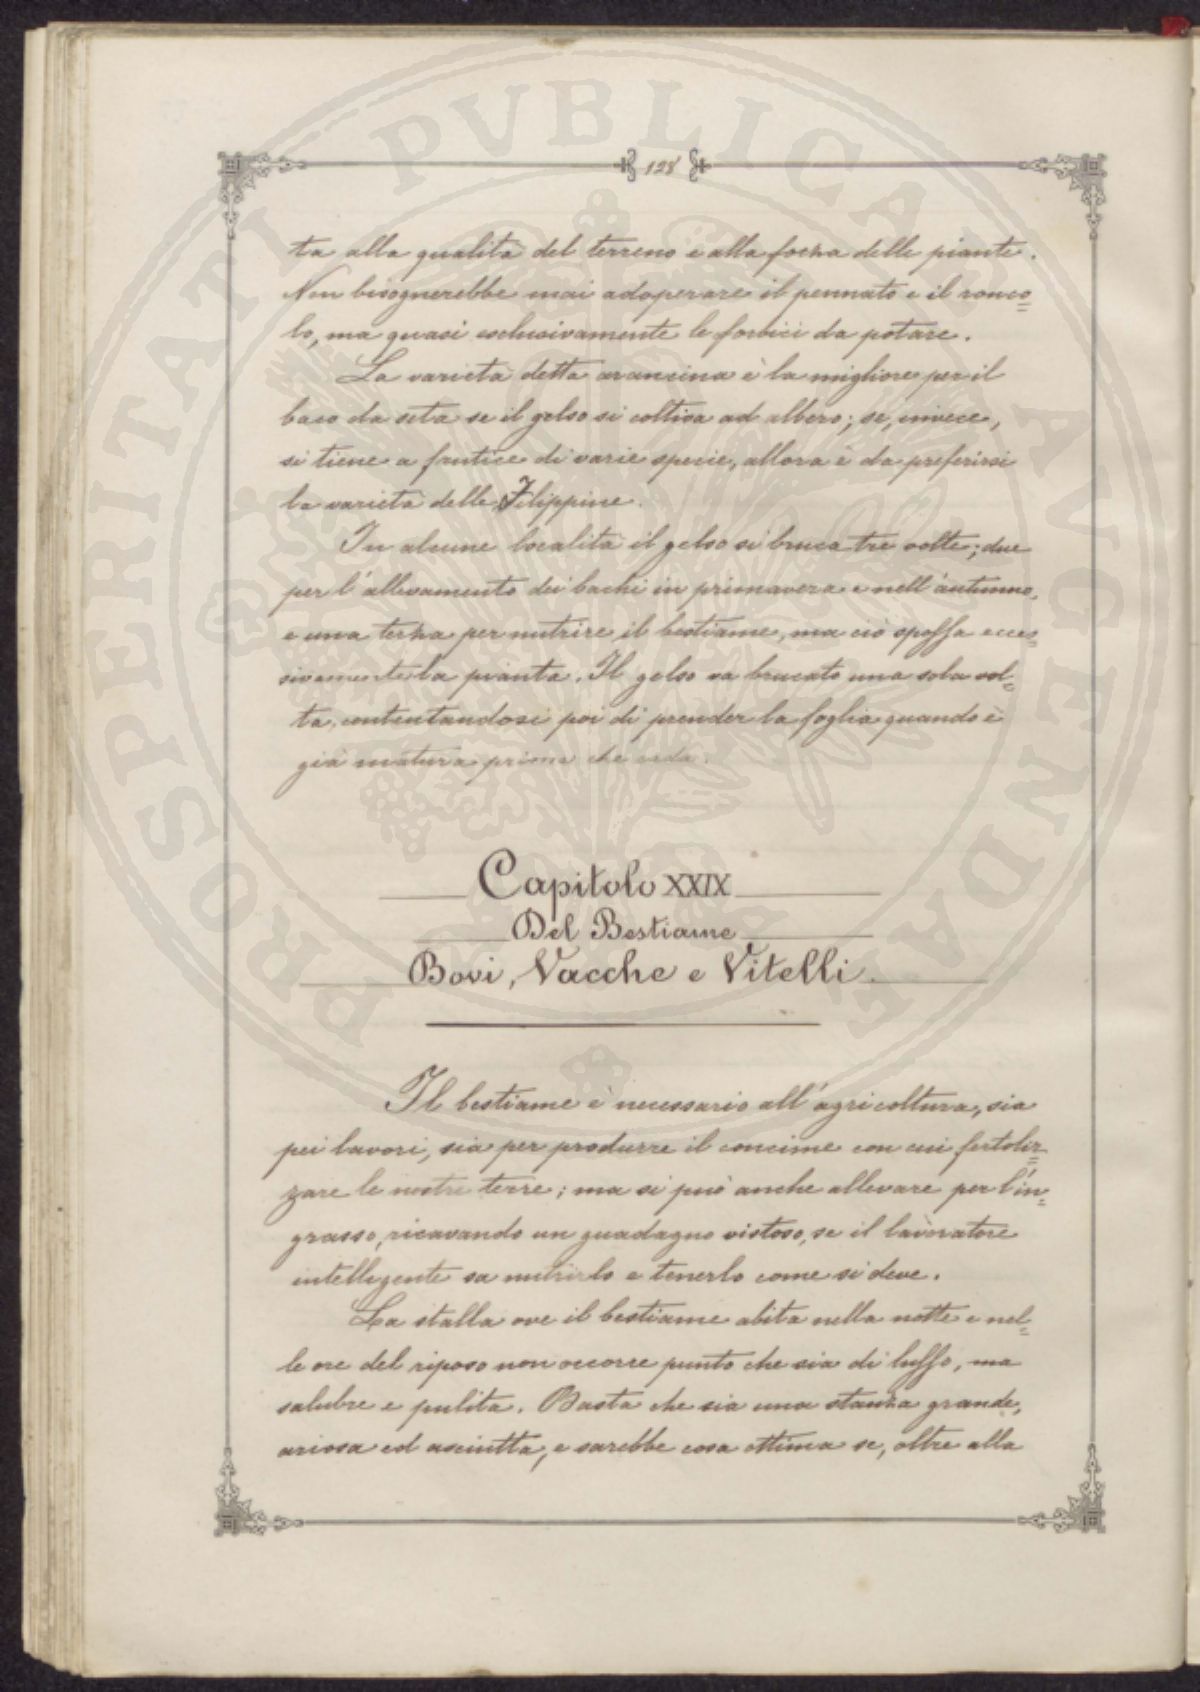 128
ta alla qualità del terreno e alla forza delle piante.
Non bisognerebbe mai adoperare il pennato e il ronco=
lo, ma quasi esclusivamente le forbici da potare.
La varietà detta arancina è la migliore per il
baco da seta se il gelso si coltiva ad albero; se, invece,
si tiene a frutice di varie specie, allora è da preferirsi
la varietà delle Filippine.
In alcune località il gelso si bruca tre volte; due
per l'allevamento dei bachi in primavera e nell'autunno,
e una terza per nutrire il bestiame, ma ciò spossa ecces=
sivamente la pianta. Il gelso va brucato una sola vol=
ta, contentandosi poi di prender la foglia quando è
già matura prima che cada.
Capitolo XXIX
Del Bestiame
Bovi, Vacche e Vitelli.
Il bestiame è necessario all'agricoltura, sia
pei lavori, sia per produrre il concime con cui fertiliz=
zare le nostre terre; ma si può anche allevare per l'in=
grasso, ricavando un guadagno vistoso, se il lavoratore
intelligente sa nutrirlo e tenerlo come si deve.
La stalla ove il bestiame abita nella notte e nel=
le ore del riposo non occorre punto che sia di lusso, ma
salubre e pulita. Basta che sia una stanza grande,
ariosa ed asciutta, e sarebbe cosa ottima se, oltre alla
PROSPERITATI PVBLICAE AVGENDAE